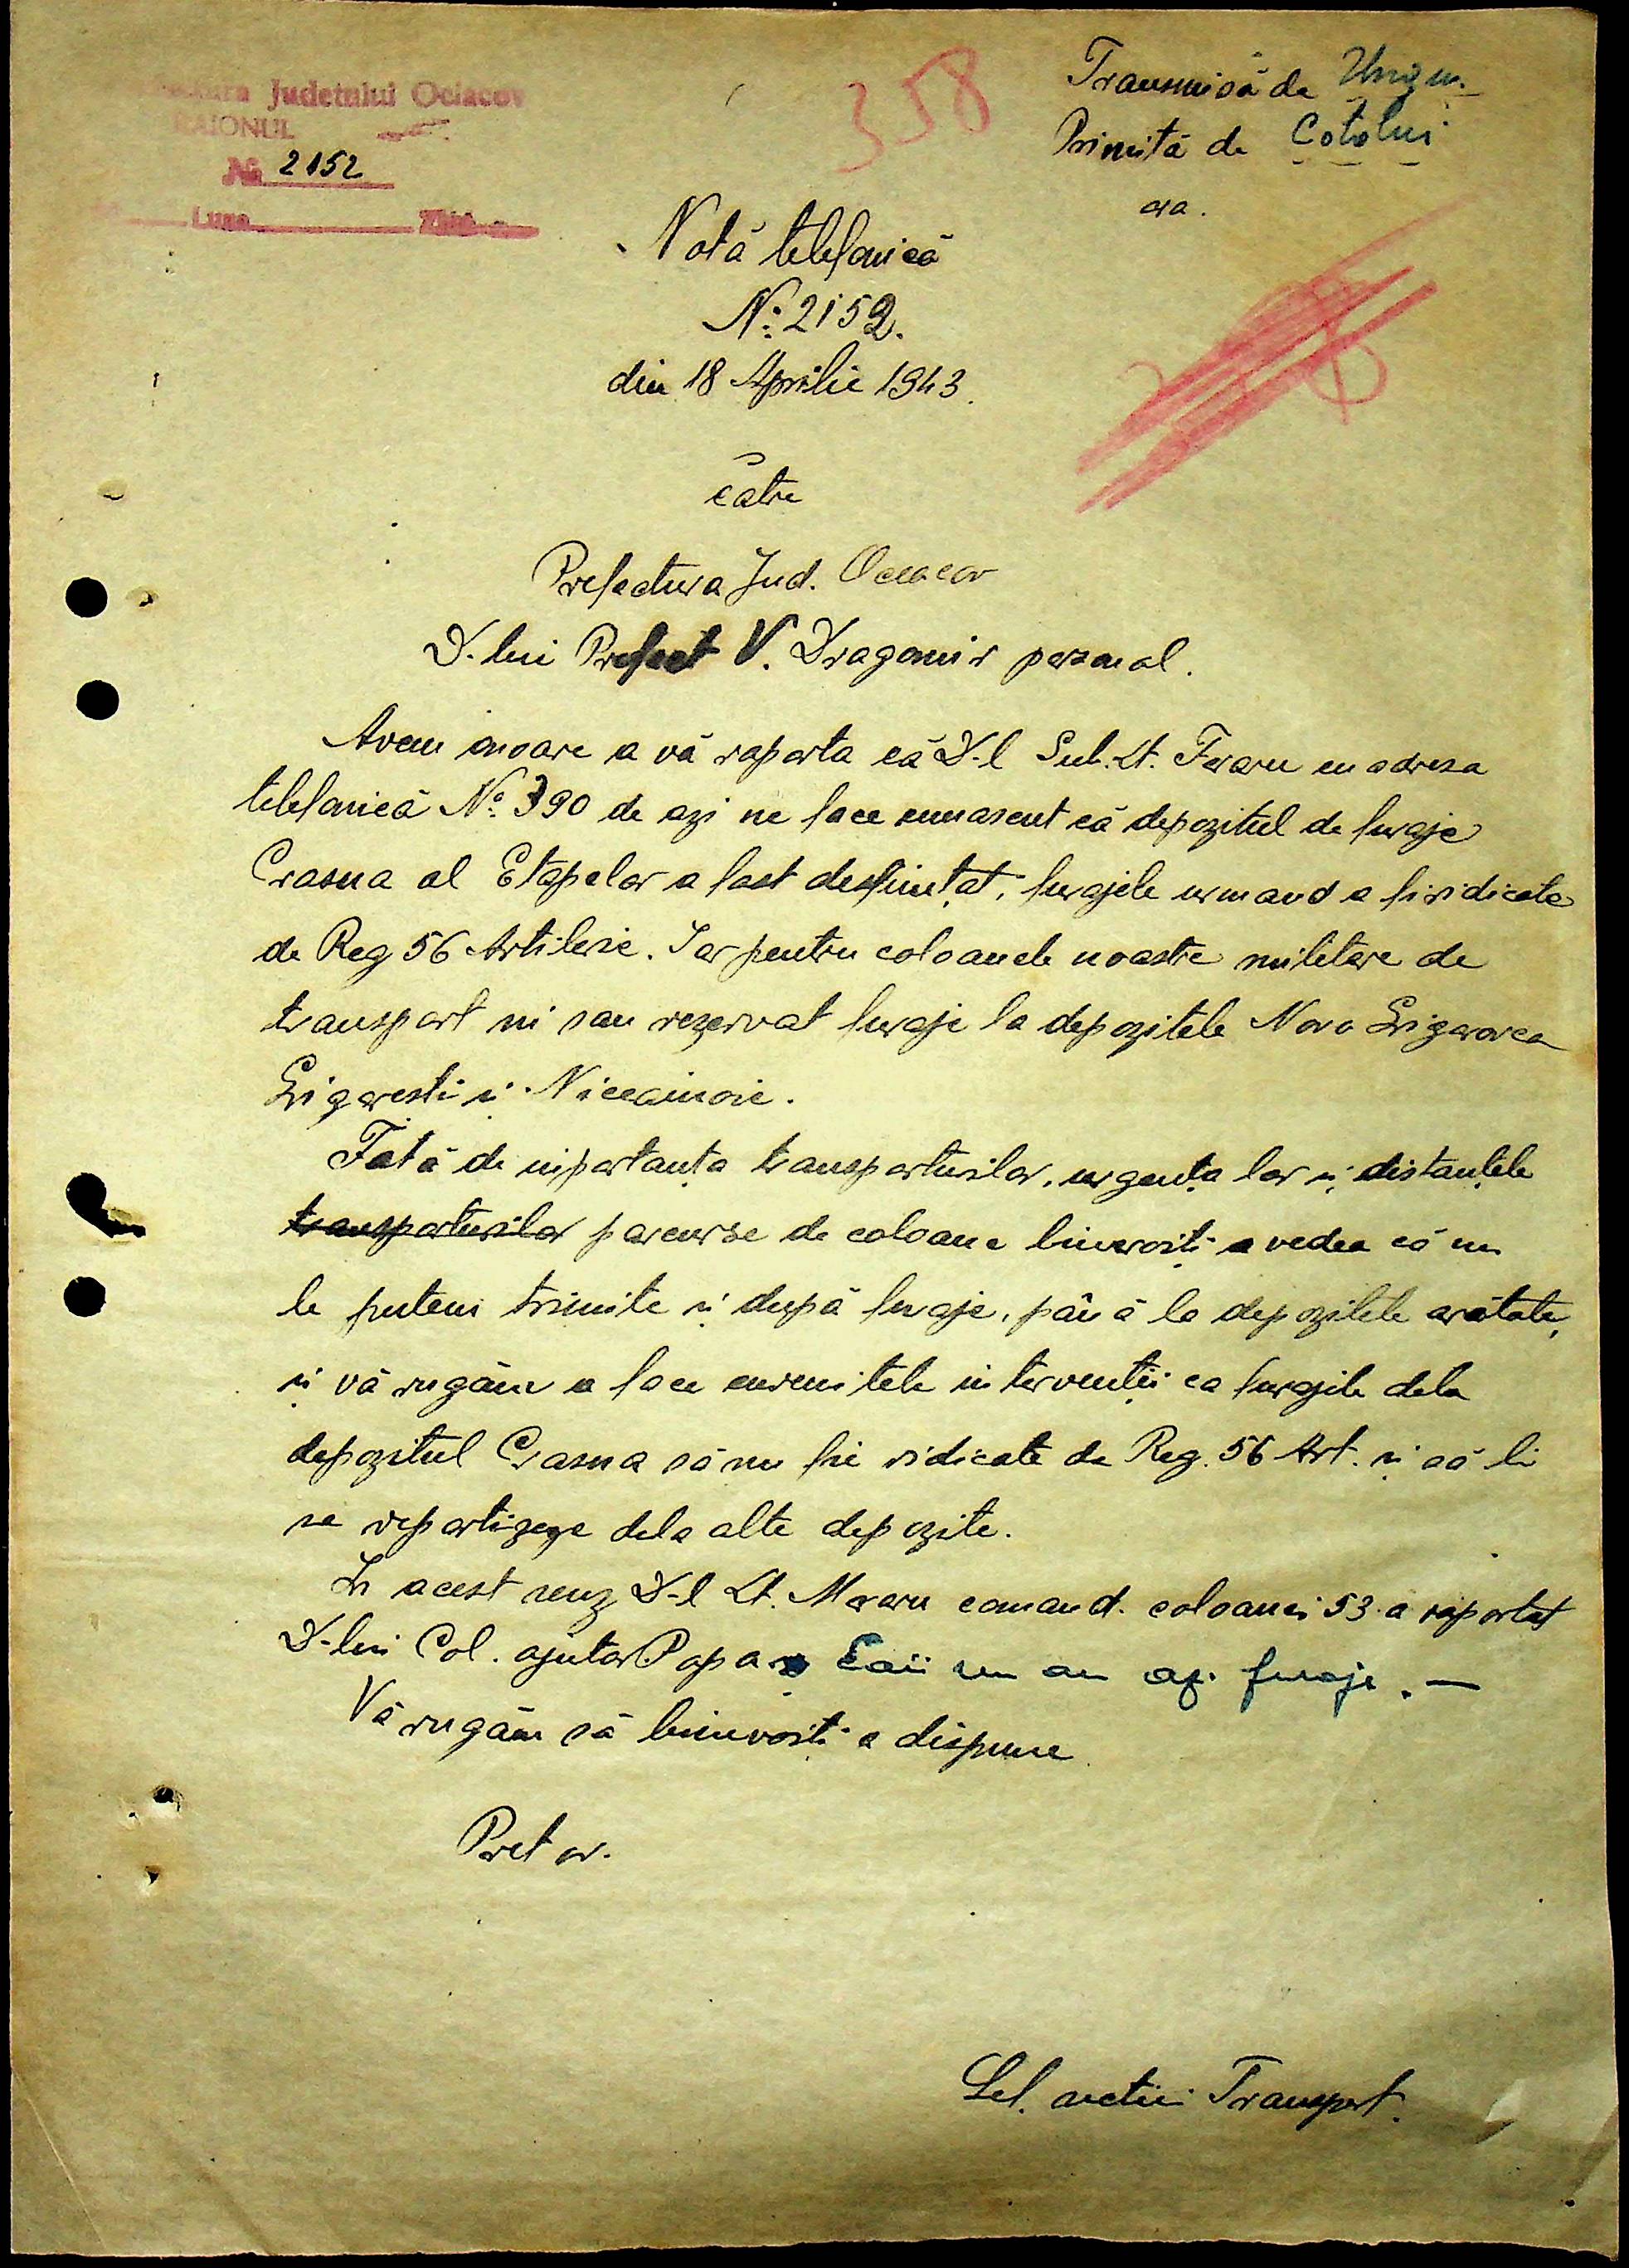 Judetului Ociacov
RAIONUL
No 2152
Luna
358
Transmisă de
Primită de
ora.
Notă telefonică
No: 2152.
din 18 Aprilie 1943.
către
Prefectura Jud. Oceacov
D-lui Prefect V. Dragomir personal.
Avem onoare a vă raporta că D-l Sub.Lt. Feraru cu adresa
telefonică No. 390 de azi ne face cunnascut că depozitul de furaje
Crasna al Etapelor a fost desfiintat, furajele urmand a fi ridicate
de Reg 56 Artilerie. Iar pentru coloanele noastre militare de
transport ni sau rezervat furaje la depozitele Novo Grigorovca
Grigoresti și
Fată de importanța transporturilor, urgența lor și distanțele
transporturilor parcurse de coloane binevoiți a vedea că nu
le putem trimite și după furaje, până la depozitele arătate,
și vă rugăm a face cuvenitele intervenții ca furajele dela
depozitul Crasna să nu fie ridicate de Reg. 56 Art. și să li
se repartizeze dela alte depozite.
In acest senz D-l Lt. Moraru comand. coloanei 53 a raportat
D-lui Col. ajutor Popa. Caii nu au azi furaje. —
Vă rugăm să binevoiți a dispune
Pretor.
Șef. sectiei Transport.